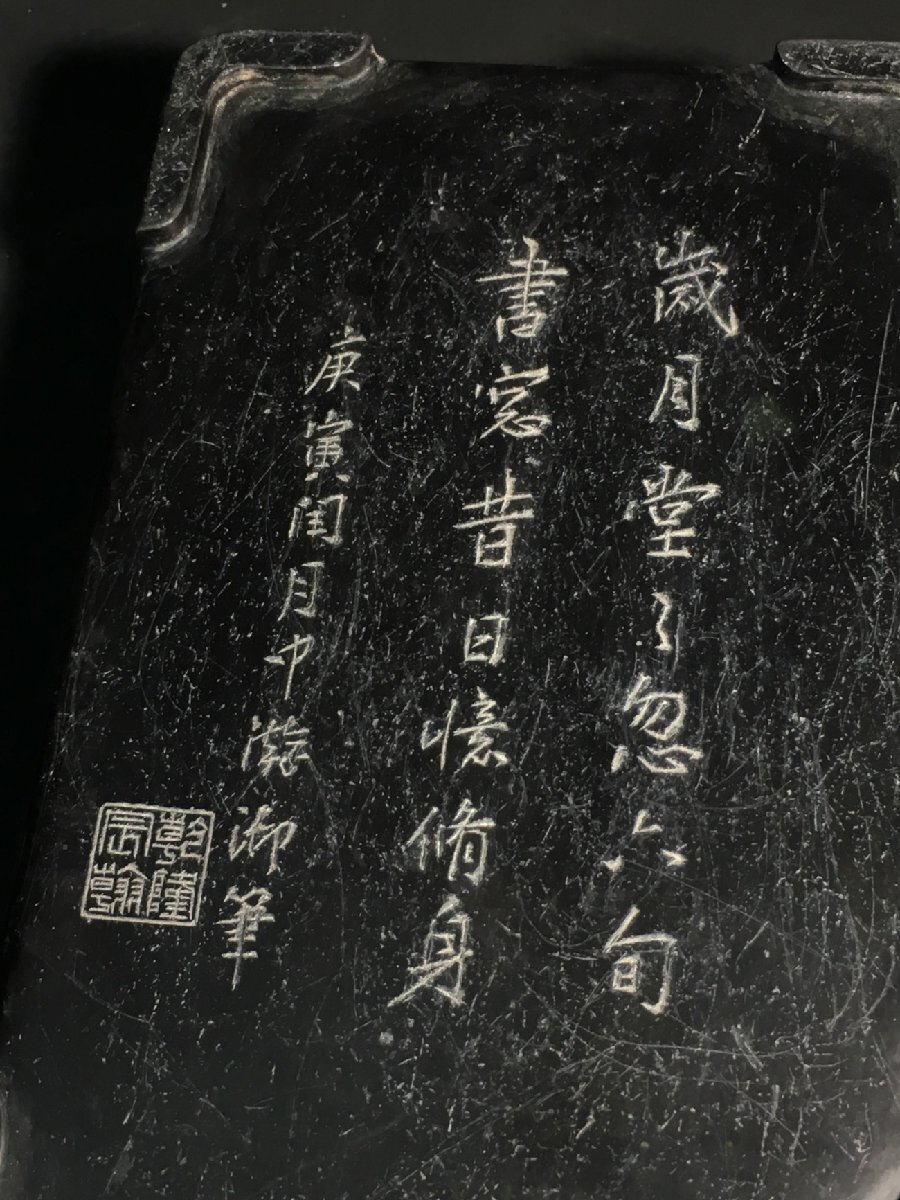 歲月堂〻忽六旬
書窓昔日憶脩身
庚寅閏月中澣御筆
乾隆宸翰